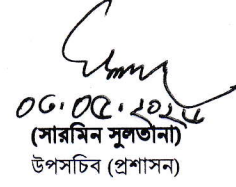 ০৬.০৫.২০২৫
(সারমিন সুলতানা)
উপসচিব (প্রশাসন)